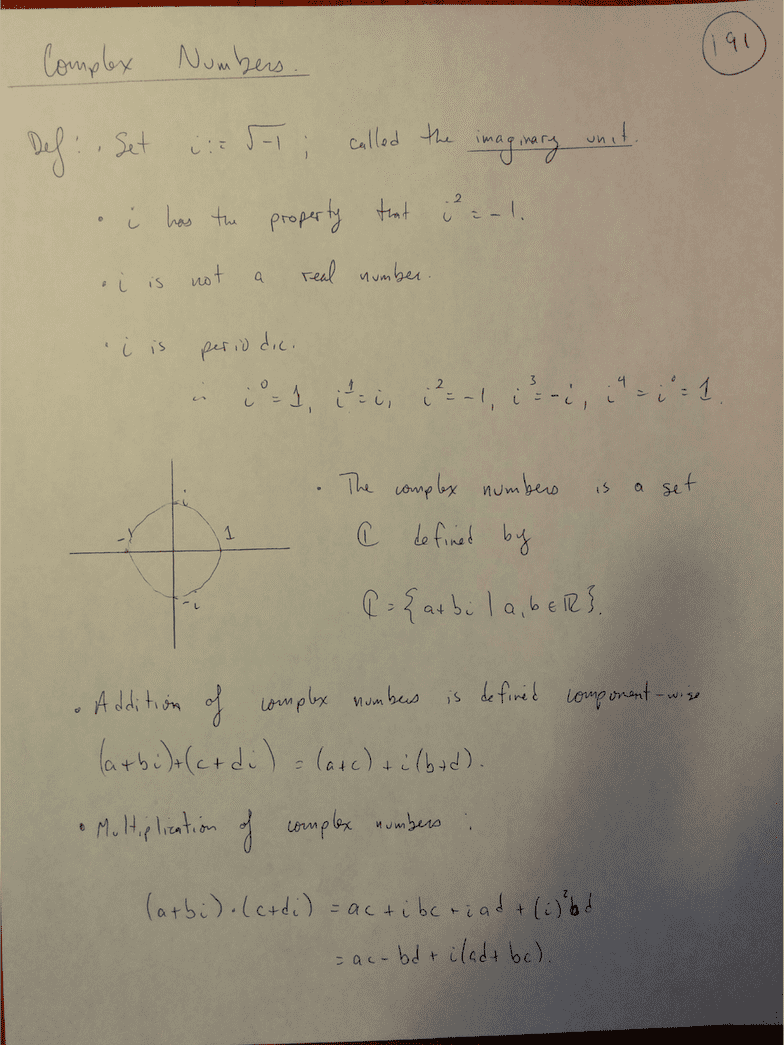 191
Complex Numbers.
Def: • Set i := √-1 ; called the imaginary unit.
• i has the property that i² = -1.
• i is not a real number.
• i is periodic.
∴ i⁰ = 1, i¹ = i, i² = -1, i³ = -i, i⁴ = i⁰ = 1.
i
-1 1
-i
• The complex numbers is a set
ℂ defined by
ℂ = {a+bi | a, b ∈ ℝ}.
• Addition of complex numbers is defined component-wise
(a+bi)+(c+di) = (a+c) + i(b+d).
• Multiplication of complex numbers :
(a+bi)·(c+di) = ac + ibc + iad + (i)²bd
= ac - bd + i(ad + bc).